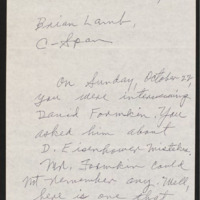 Brian Lamb,
C-Span
On Sunday, October 22,
you were interviewing
David Fromkin. You
asked him about
D. Eisenhower mistakes.
Mr. Fromkin could
not remember any. Well,
here is one that